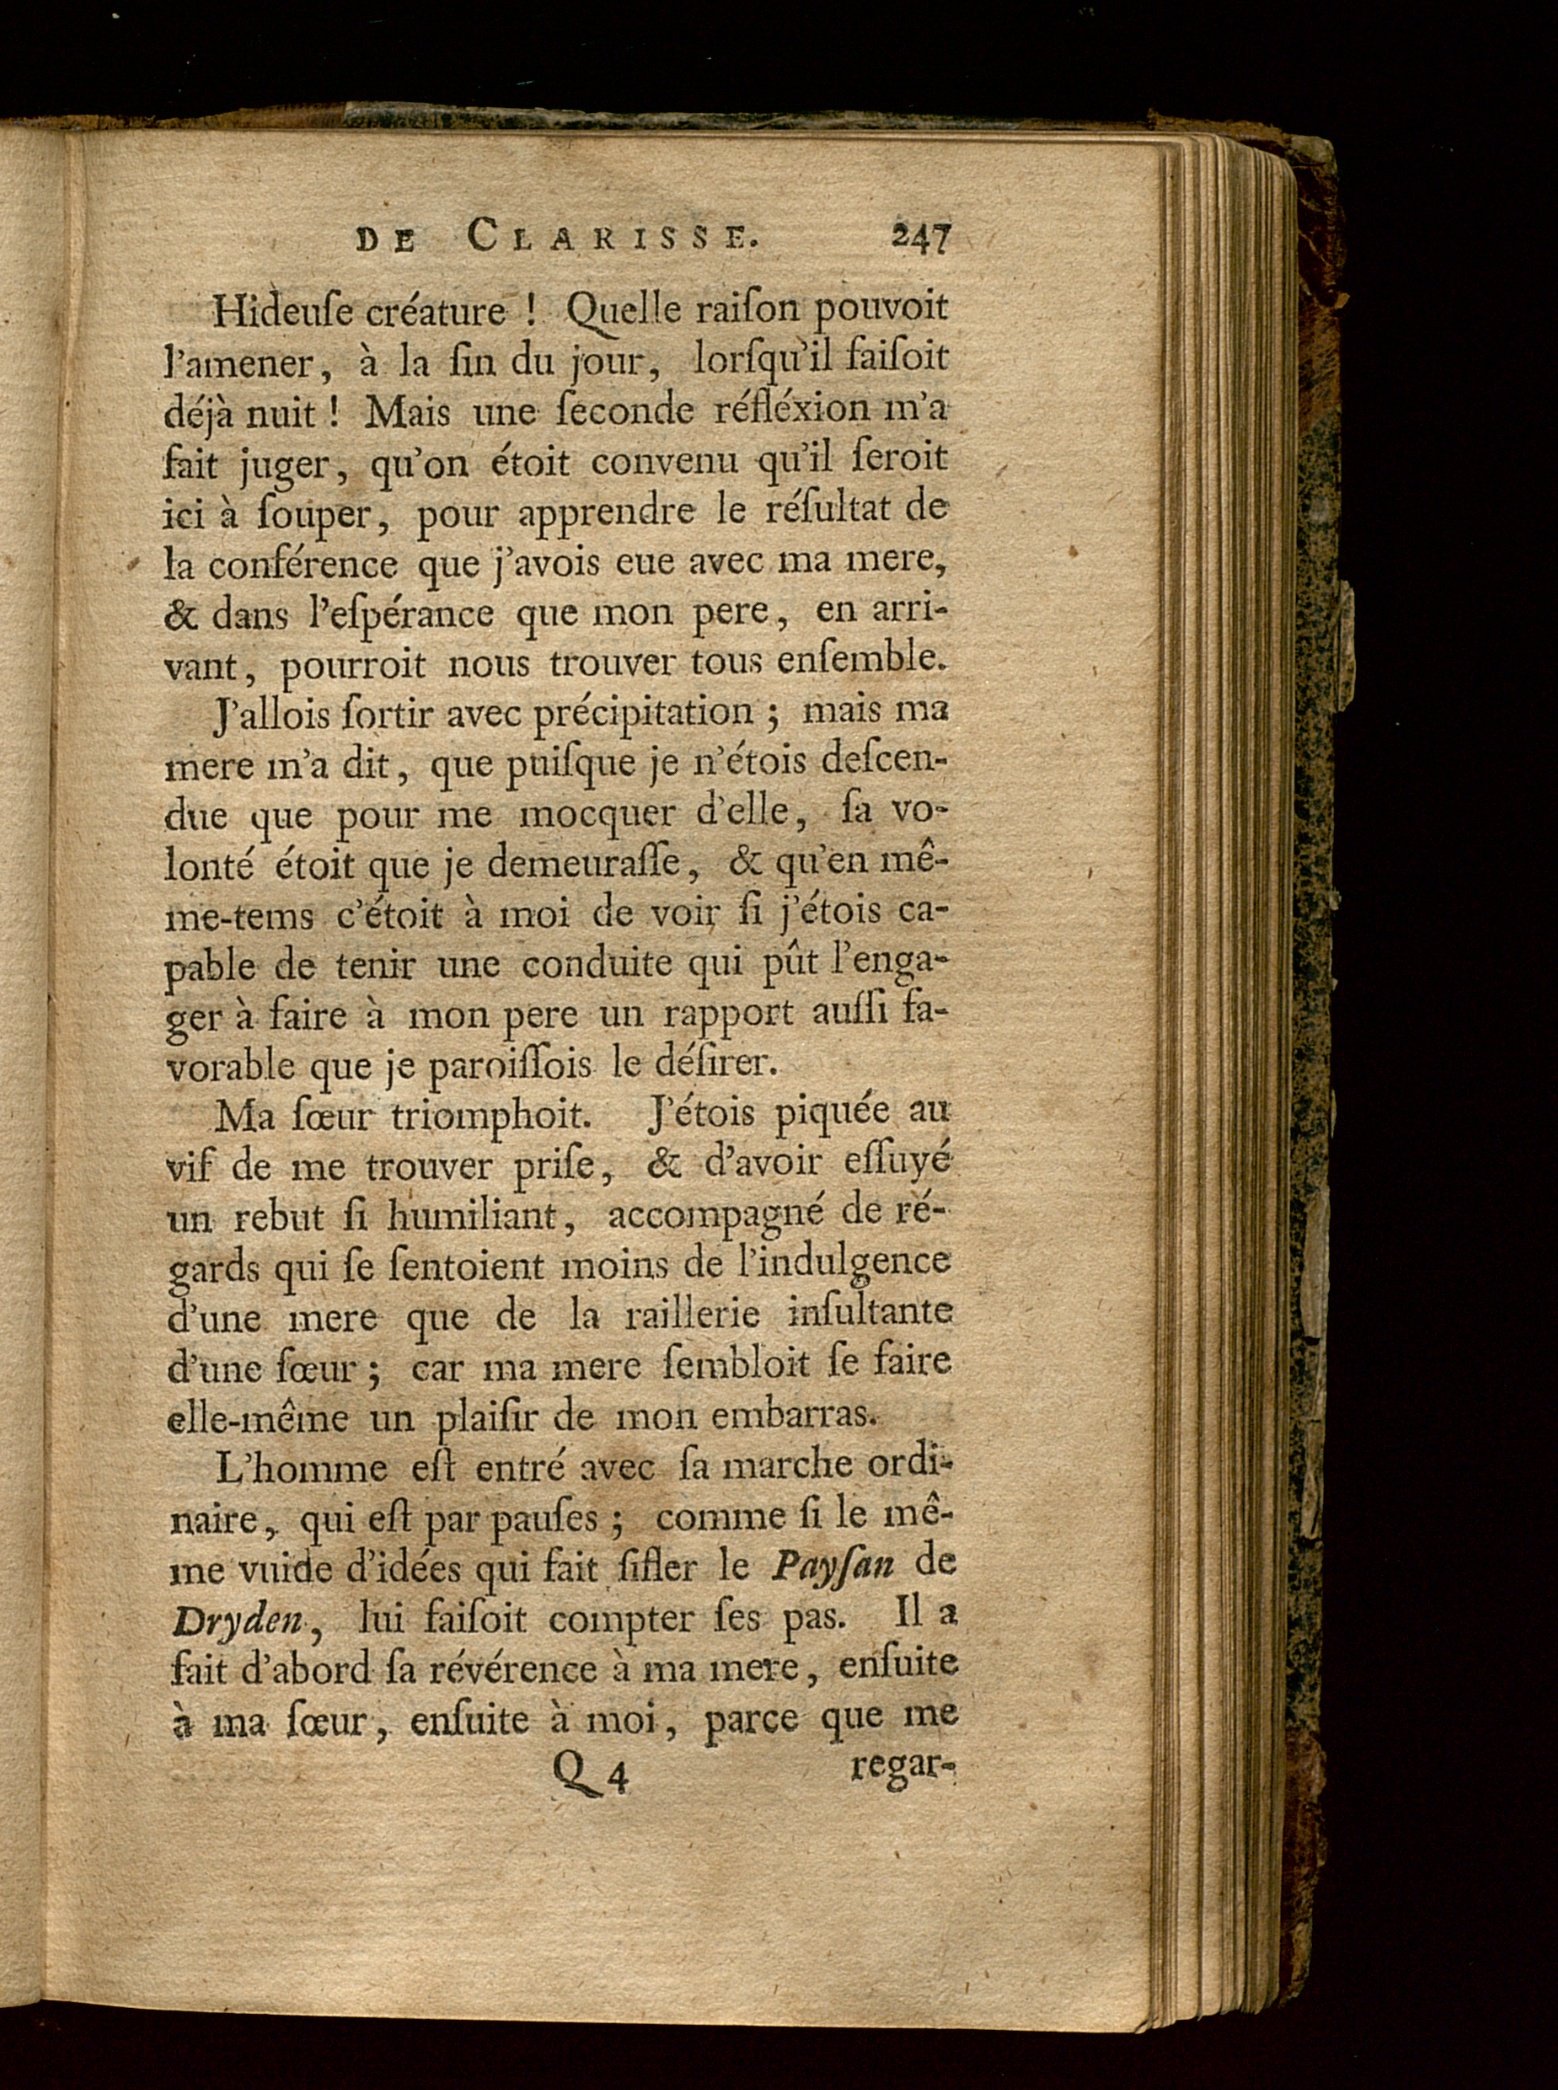 DE CLARISSE. 247
Hideuſe créature ! Quelle raiſon pouvoit
l'amener, à la fin du jour, lorſqu'il faiſoit
déjà nuit ! Mais une ſeconde réfléxion m'a
fait juger, qu'on étoit convenu qu'il ſeroit
ici à ſouper, pour apprendre le réſultat de
la conférence que j'avois eue avec ma mere,
& dans l'eſpérance que mon pere, en arri-
vant, pourroit nous trouver tous enſemble.
J'allois ſortir avec précipitation ; mais ma
mere m'a dit, que puiſque je n'étois deſcen-
due que pour me mocquer d'elle, ſa vo-
lonté étoit que je demeuraſſe, & qu'en mê-
me-tems c'étoit à moi de voir ſi j'étois ca-
pable de tenir une conduite qui pût l'enga-
ger à faire à mon pere un rapport auſſi fa-
vorable que je paroiſſois le déſirer.
Ma ſœur triomphoit. J'étois piquée au
vif de me trouver priſe, & d'avoir eſſuyé
un rebut ſi humiliant, accompagné de ré-
gards qui ſe ſentoient moins de l'indulgence
d'une mere que de la raillerie inſultante
d'une ſœur ; car ma mere ſembloit ſe faire
elle-même un plaiſir de mon embarras.
L'homme eſt entré avec ſa marche ordi-
naire, qui eſt par pauſes ; comme ſi le mê-
me vuide d'idées qui fait ſifler le Payſan de
Dryden, lui faiſoit compter ſes pas. Il a
fait d'abord ſa révérence à ma mere, enſuite
à ma ſœur, enſuite à moi, parce que me
Q 4 regar-